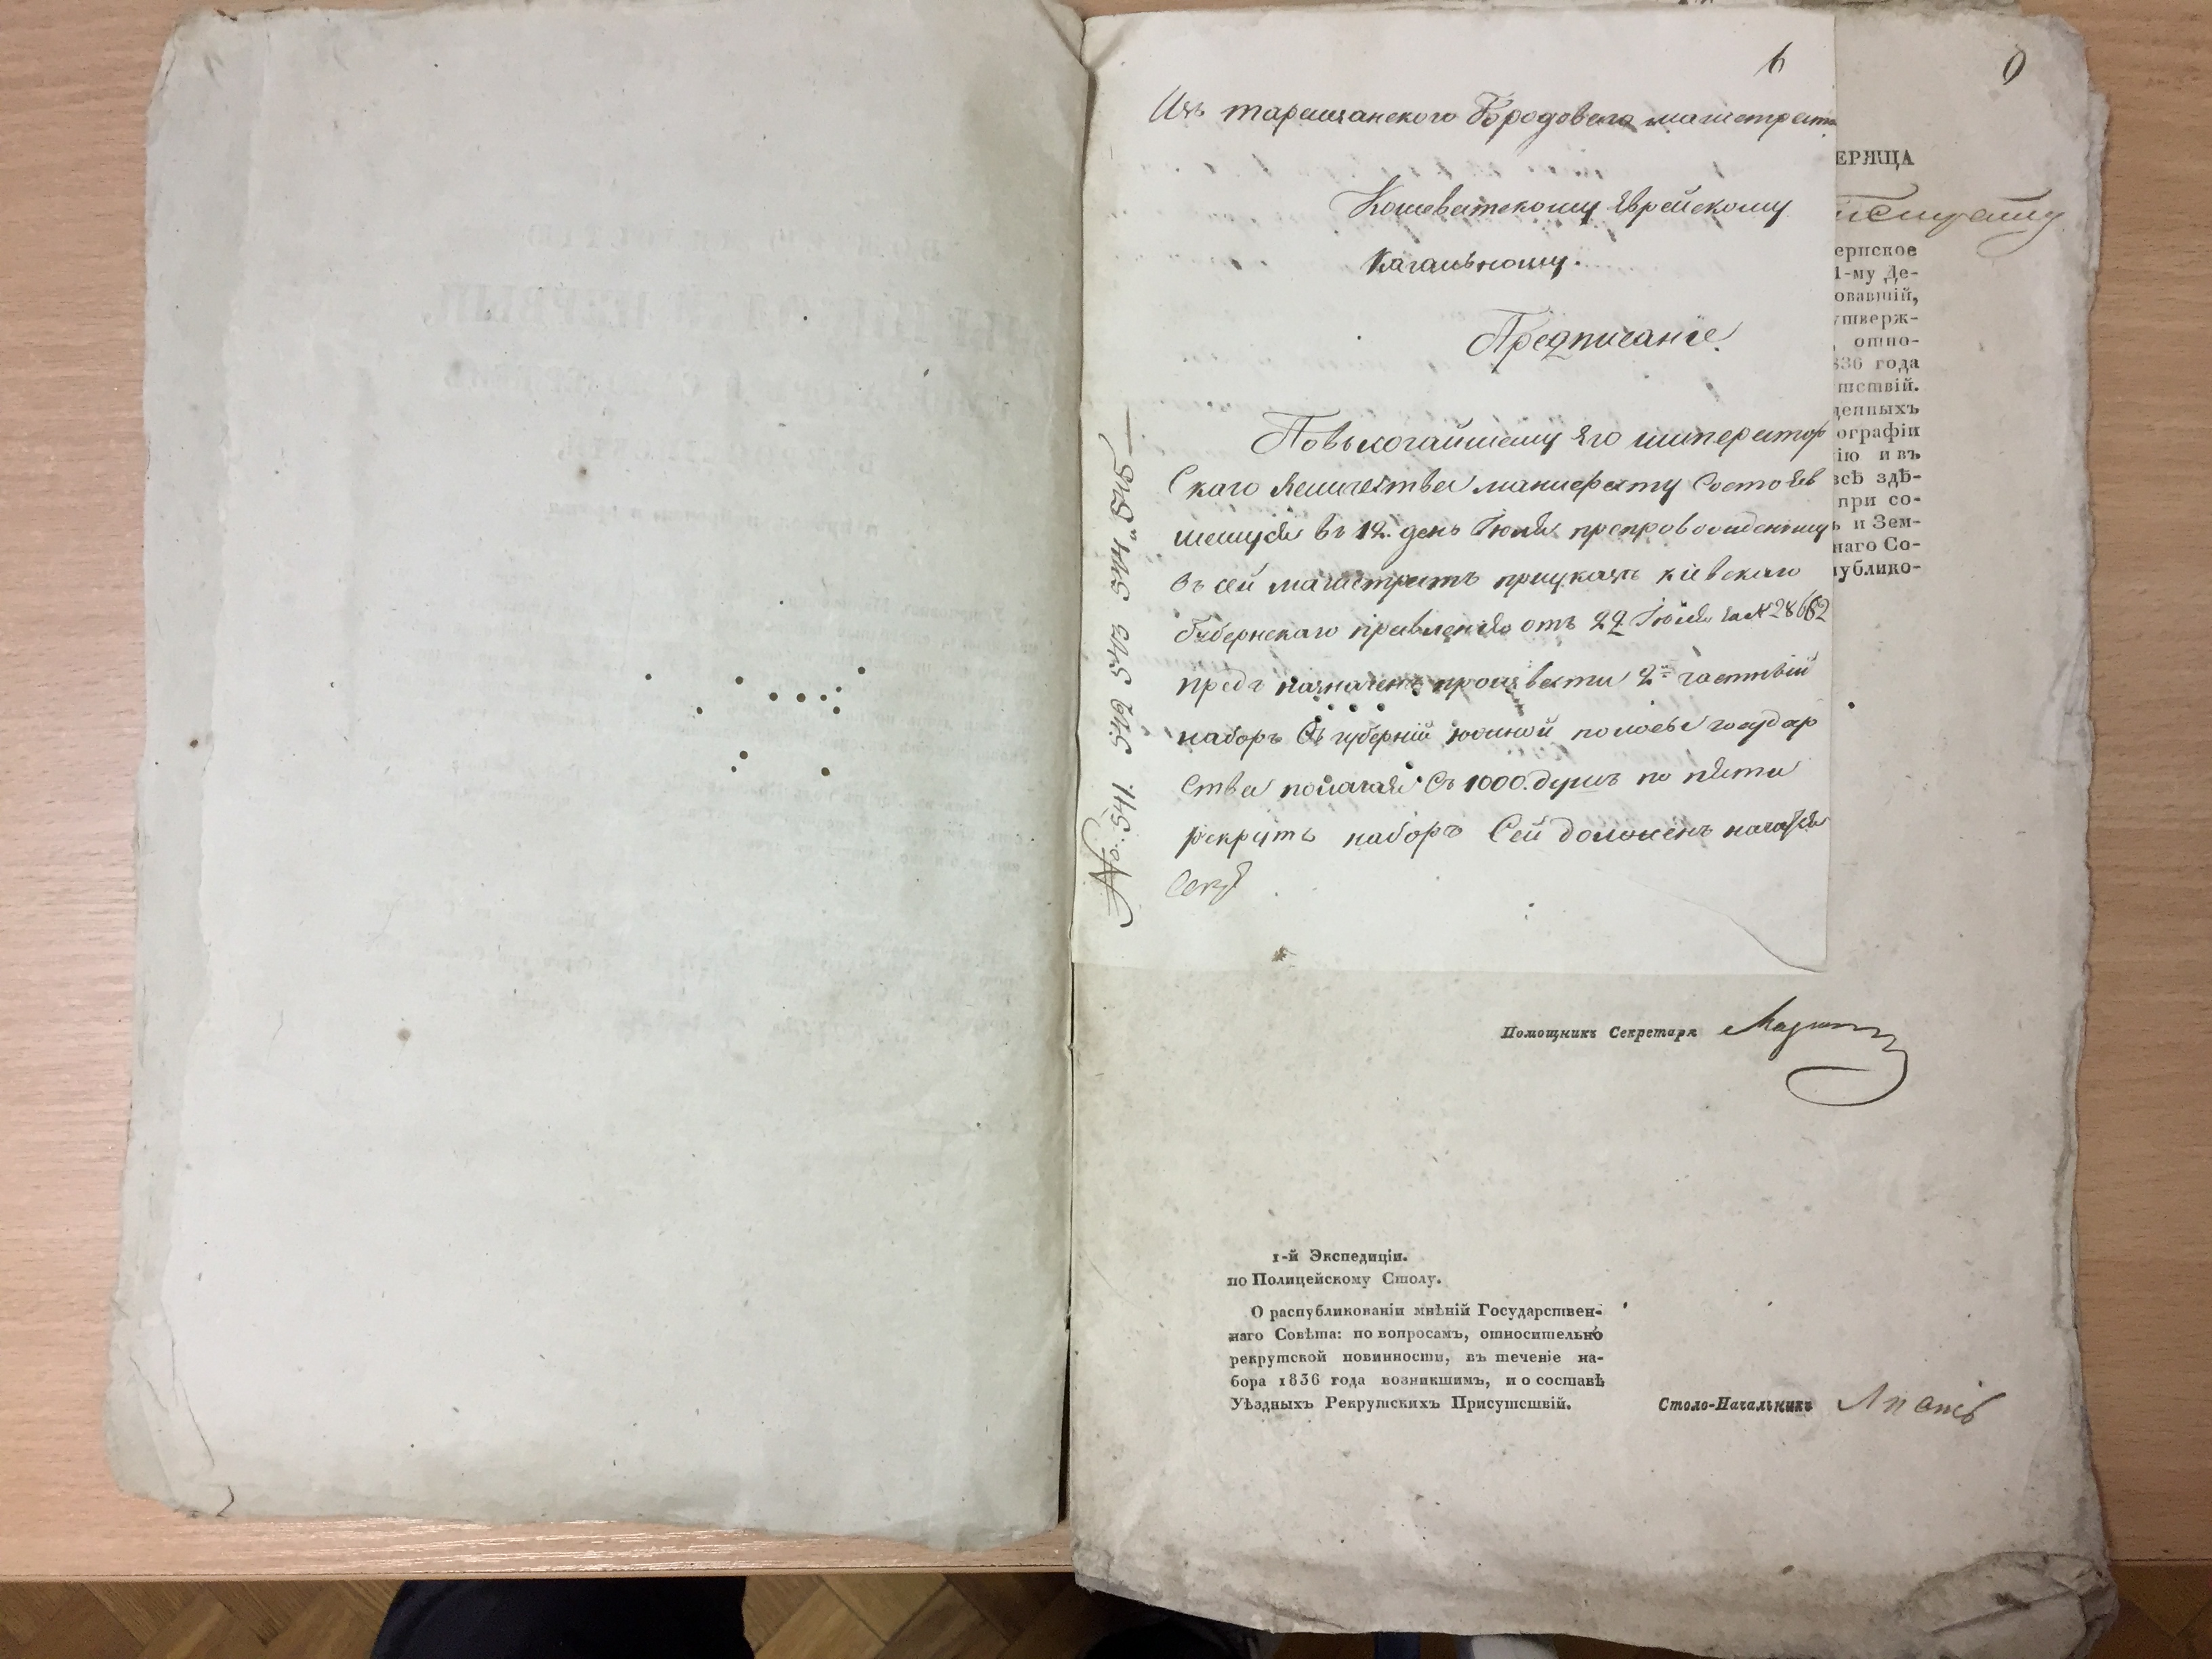 6
Изъ таращанского Городоваго магистрата
Кошеватскому Еврейскому
Кагальному.
Предписание.
Повысочайшему Его император
Скаго величества манифесту Состояв
шемуся въ 12. день Іюля препровожденному
въ сей магистратъ приуказѣ кіевскаго
губернскаго правленія отъ 22 Іюля за № 28662
предъ назначенъ произвести 2й частный
наборъ Съ губерній южной полосы государ
ства полагая Съ 1000. душъ по пяти
рекрутъ наборъ Сей долженъ начаться
No. 541. 542 543 544 „ 545
0
ЕРЖЦА
ернское
1-му Де-
овавшій,
утверж-
, отно-
836 года
тствій.
денныхъ
ографіи
ію и въ
всѣ здѣ-
при со-
ь и Зем-
наго Со-
публико-
Помощникъ Секретаря
1-й Экспедиціи.
по Полицейскому Столу.
О распубликованіи мнѣній Государствен-
наго Совѣта: по вопросамъ, относительно
рекрутской повинности, въ теченіе на-
бора 1836 года возникшимъ, и о составѣ
Уѣздныхъ Рекрутскихъ Присутствій.
Столо-Начальникъ